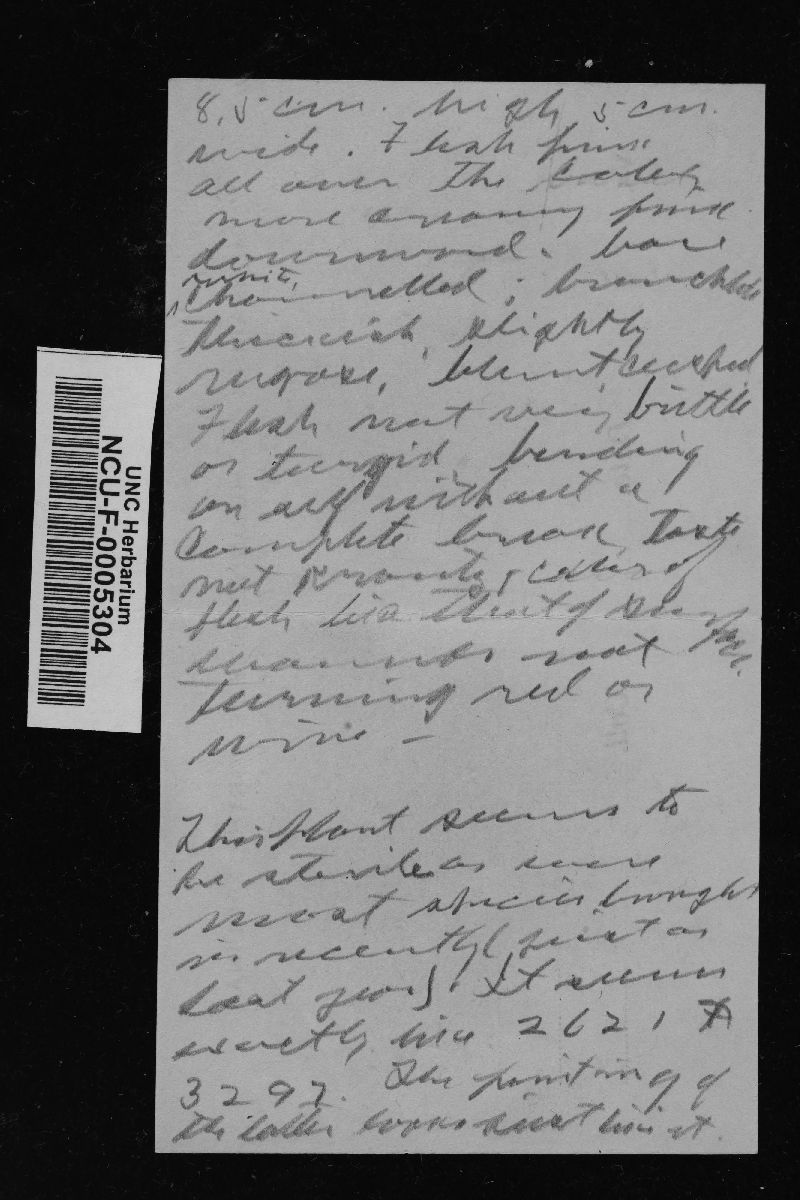 8.5 cm. high, 5 cm.
wide. Flesh pink
all over the color,
more creamy pink
downward. base
white,
channelled; branches
thickish, slightly
rugose, blunt cusped
Flesh not very brittle
or turgid, bending
on self without a
complete break, Taste
not krauty, color of
flesh like that of
not
turning red or
wine –
This plant seems to
be sterile as were
most species brought
in recently (just as
last year). It seems
exactly like 2621 &
3292. The painting of
the latter looks just like it.
UNC Herbarium
NCU-F-0005304